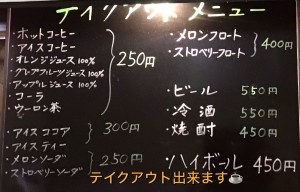 テイクアウトメニュー
・ホットコーヒー
・アイスコーヒー
・オレンジジュース100%
・グレープフルーツジュース100%
・アップルジュース100%
・コーラ
・ウーロン茶
250円
・アイスココア
・アイスティー
300円
・メロンソーダ
・ストロベリーソーダ
250円
・メロンフロート
・ストロベリーフロート
400円
・ビール 550円
・冷酒 550円
・焼酎 450円
・ハイボール 450円
テイクアウト出来ます☕